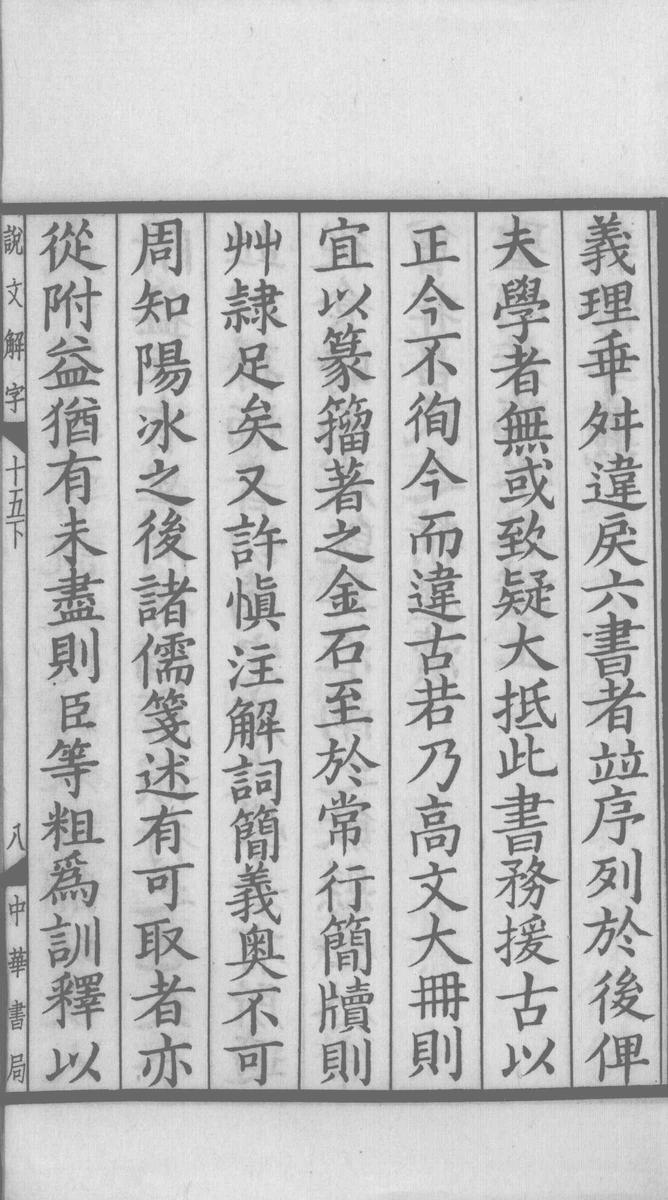 義理乖舛違戾六書者竝序列於後俾
夫學者無或致疑大抵此書務援古以
正今不徇今而違古若乃高文大冊則
宜以篆籀著之金石至於常行簡牘則
艸隷足矣又許愼注解詞簡義奥不可
周知陽冰之後諸儒箋述有可取者亦
從附益猶有未盡則臣等粗爲訓釋以
說文解字 十五下 八 中華書局